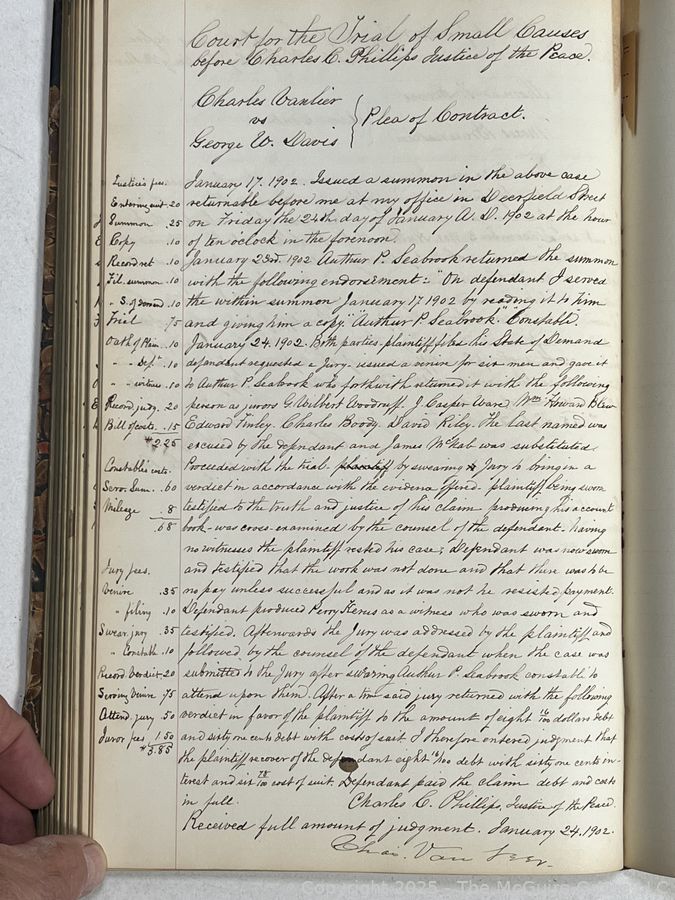 Court for the Trial of Small Causes
before Charles C. Phillips Justice of the Peace.
Charles Vanlier
vs
George W. Davis
Plea of Contract.
January 17. 1902. Issued a summon in the above case
returnable before me at my office in Deerfield Street
on Friday the 24th day of January A. D. 1902 at the hour
of ten oclock in the forenoon.
January 23rd. 1902 Authur P. Seabrook returned the summon
with the following endorsement: "On defendant I served
the within summon January 17 1902 by reading it to him
and giving him a copy." Authur P. Seabrook." Constable.
January 24. 1902. Both parties. plaintiff files his State of Demand
defendant requested a jury. issued a venire for six men and gave it
to Authur P. Seabrook who forthwith returned it with the following
person as jurors G Wilbert Woodruff. J. Casper Ware Wm Howard Blew
Edward Finley. Charles Boody. David Riley. The last named was
excused by the defendant and James McNab was substituted.
Proceeded with the trial by swearing Jury to bring in a
verdict in accordance with the evidence offered. plaintiff being sworn
testified to the truth and justice of his claim producing his account
book - was cross-examined by the counsel of the defendent. having
no witnesses the plaintiff rested his case; Defendant was now sworn
and testified that the work was not done and that there was to be
no pay unless successful and as it was not he resisted payment.
Defendant produced Perry Kerns as a witness who was sworn and
testified. Afterwards the Jury was addressed by the plaintiff and
followed by the counsel of the defendant when the case was
submitted to the Jury after swarng Authur P. Seabrook constable to
attend upon them. After a time said jury returned with the following
verdict in favor of the plaintiff to the amount of eight 16/100 dollars debt
and sixty one cents debt with costs of suit. I therefore entered judgment that
the plaintiff recover of the defendant eight 16/100 debt with sixty one cents in-
terest and six 78/100 cost of suit. Defendant paid the claim debt and costs
in full. Charles C. Phillips, Justice of the Peace.
Received full amount of judgment. January 24, 1902.
Chas. Van Leer.
Justice's fees.
Entering suit .20
Summon .25
Copy .10
Record ret .10
Fil. summon .10
" S. of demand .10
Trial 75
Oath of Plain .10
" " Deft. .10
" " witness .10
Record judg. 20
Bill of costs. .15
$2.25
Constable costs.
Serv. Sum. .60
Mileage .8
.68
Jury fees.
Venire .35
" filing .10
Swear. jury .35
" Constabl .10
Record Verdict 20
Serving Venire 75
Attend jury .50
Juror fees 1.50
$3.85
Copyright 2025 - The McGuire LLC